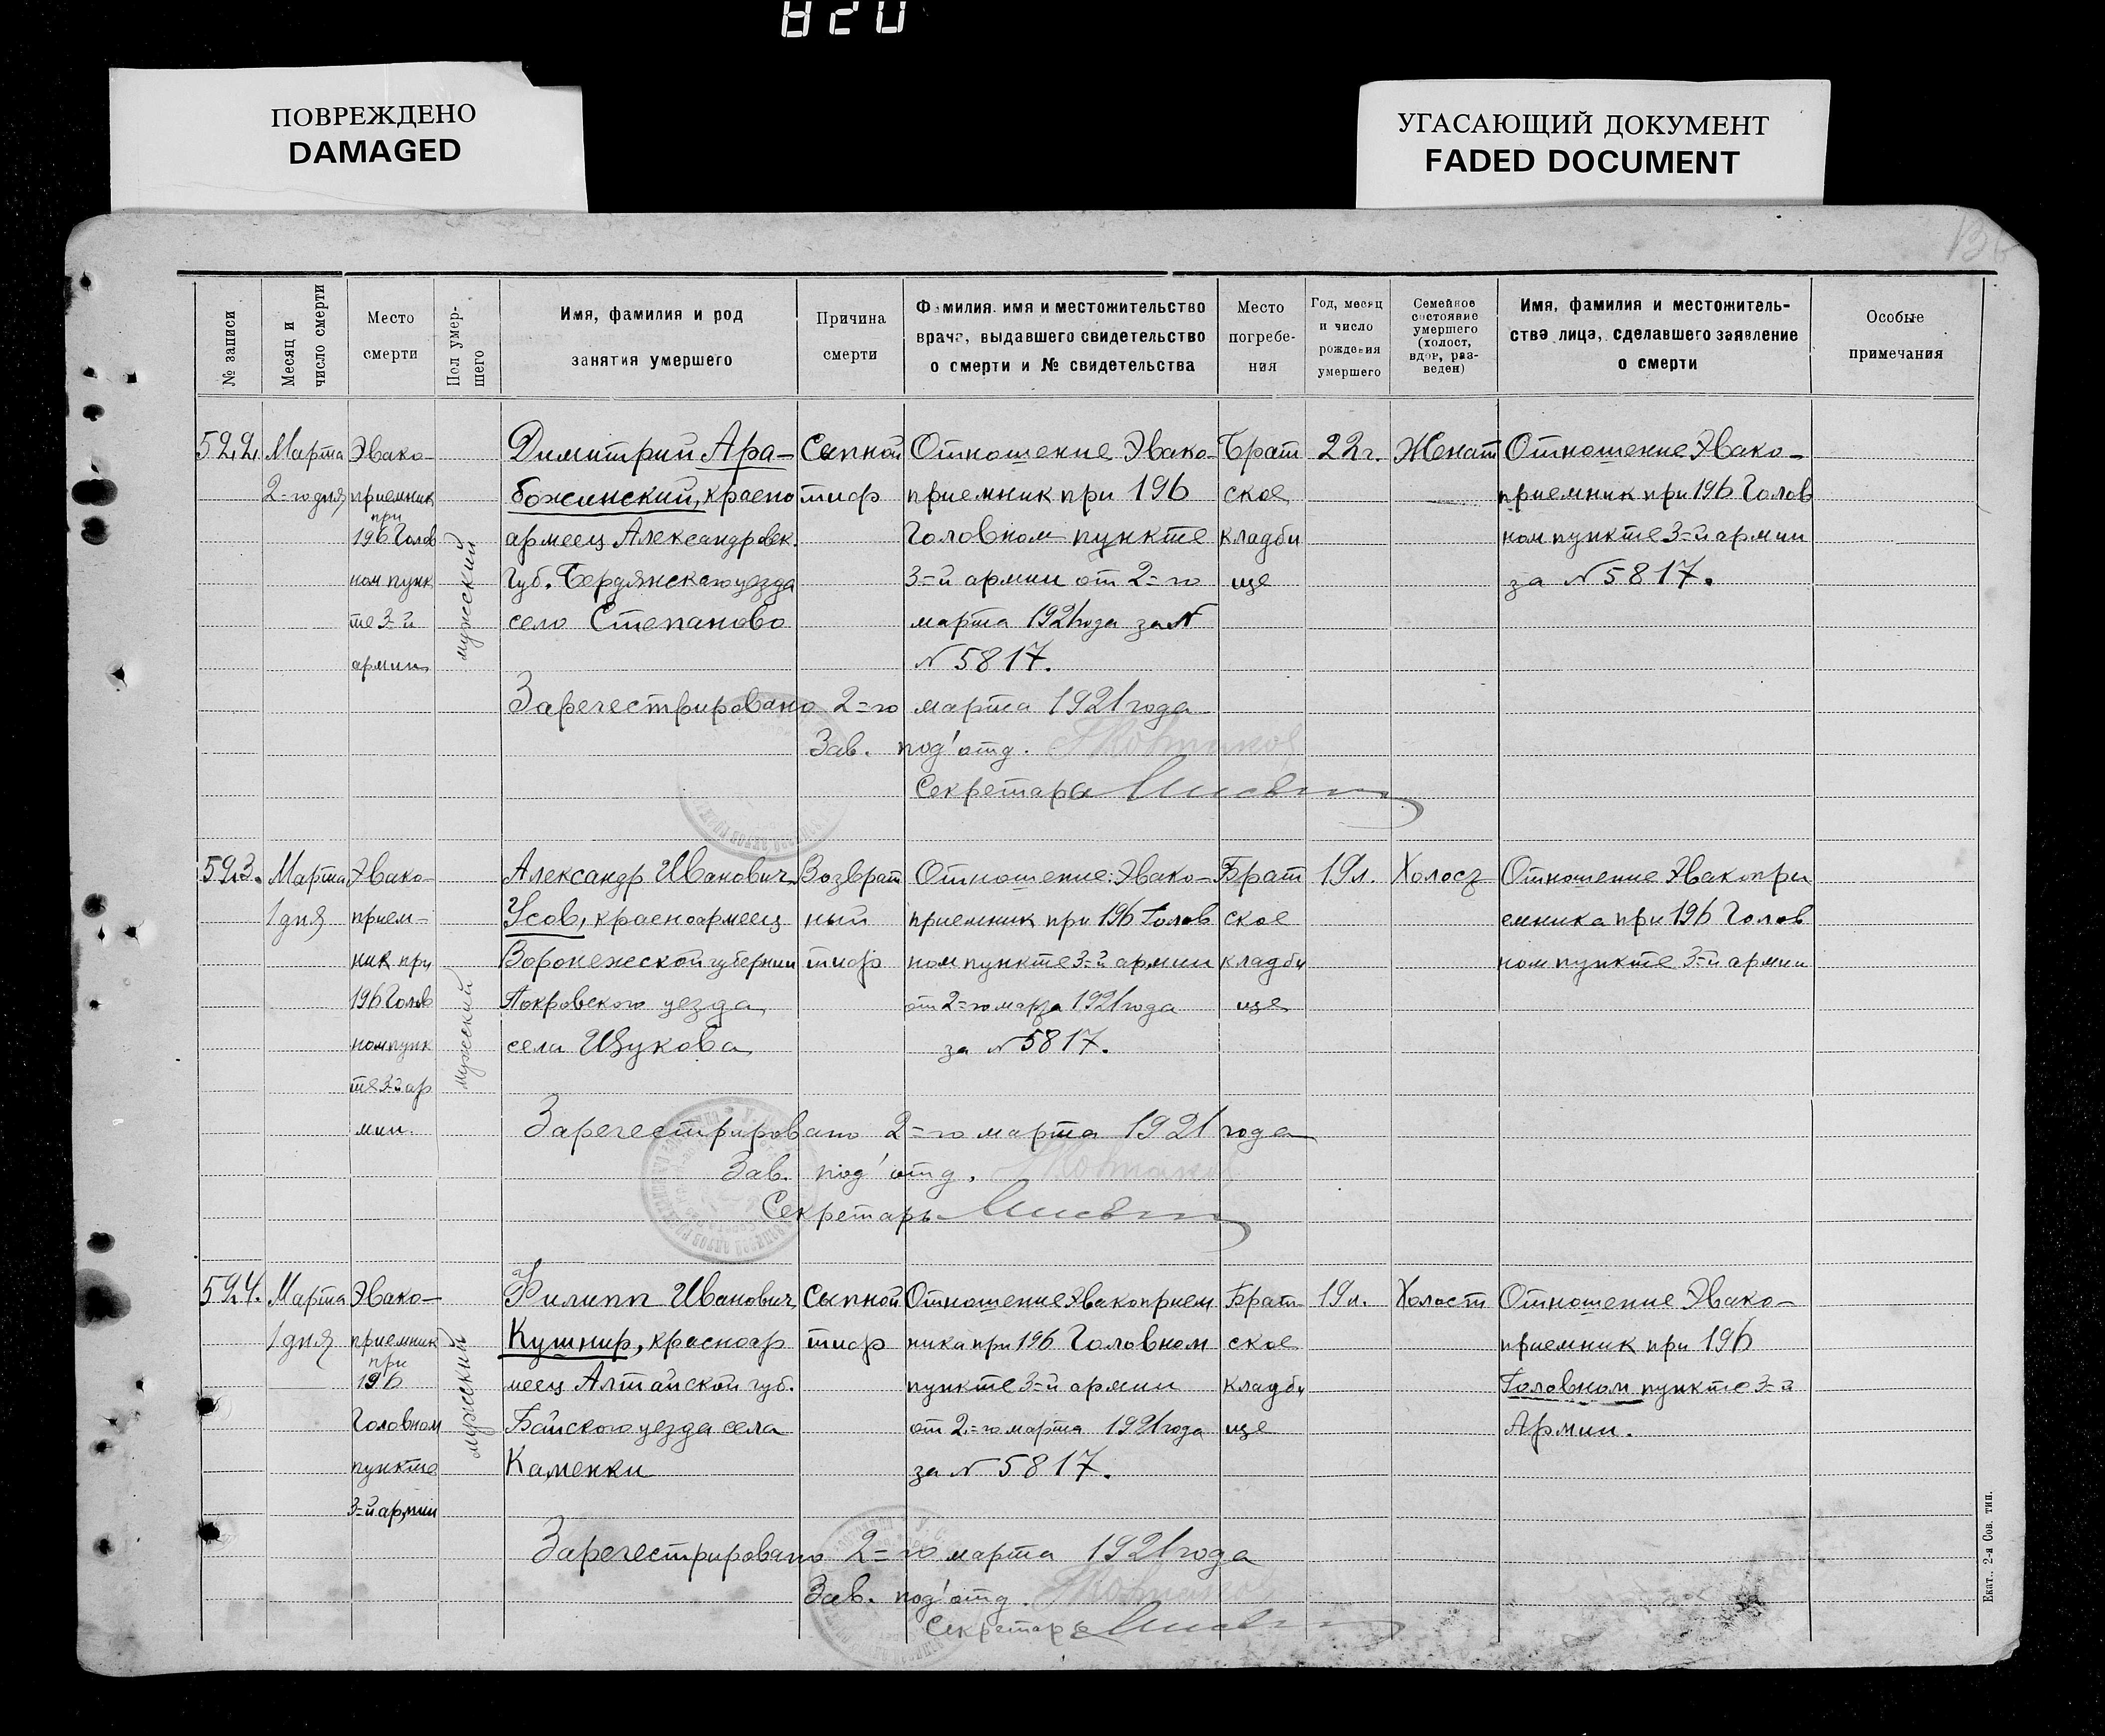 820
ПОВРЕЖДЕНО
DAMAGED
УГАСАЮЩИЙ ДОКУМЕНТ
FADED DOCUMENT
№ записи
Месяц и
число смерти
Место
смерти
Пол умер-
шего
Имя, фамилия и род
занятия умершего
Причина
смерти
Фамилия имя и местожительство
врача, выдавшего свидетельство
о смерти и № свидетельства
Место
погребе-
ния
Год, месяц
и число
рождения
умершего
Семейное
состояние
умершего
(холост,
вдов, раз-
веден)
Имя, фамилия и местожитель-
ства лица, сделавшего заявление
о смерти
Особые
примечания
592.
Марта
2=го дня
Эвако-
приемник
при
196 Голов
ном пунк
те 3-й
армии
мужский
Димитрий Ара-
божинский, красно
армеец Александровск.
Губ. Бердянского уезда
село Степаново
Сыпной
тиф
Отношение Эвако-
приемник при 196
Головном пункте
3=й армии от 2=го
марта 1921 года за N
N 5817.
Брат
ское
кладби
ще
22 г.
Женат
Отношение Эвако-
приемник при 196 Голов
ном пункте 3=й армии
за N 5817.
Зарегестрировано 2=го марта 1921 года
Зав. под'отд.
Секретарь
593.
Марта
1 дня
Эвако-
прием-
ник при
196 Голов
ном пунк
те 3=й ар
мии.
мужский
Александр Иванович
Усов, красноармеец
Воронежской губернии
Покровского уезда
села Щукова
Возврат
ный
тиф
Отношение Эвако-
приемник при 196 Голов
ном пункте 3=й армии
от 2=го марта 1921 года
за N 5817.
Брат
ское
кладби
ще
19 л.
Холост
Отношение Эвакопри
емника при 196 Голов
ном пункте 3=й армии
Зарегестрировано 2=го марта 1921 года
Зав. под'отд.
Секретарь
594.
Марта
1 дня
Эвако-
приемник
при
196
Головном
пункте
3=й армии
мужский
Филипп Иванович
Кушнир, красноар
меец Алтайской губ.
Байского уезда села
Каменки
Сыпной
тиф
Отношение Эвакоприем
ника при 196 Головном
пункте 3=й армии
от 2=го марта 1921 года
за N 5817.
Брат
ское
кладби
ще
19 л.
Холост
Отношение Эвако-
приемник при 196
Головном пункте 3=й
Армии.
Зарегестрировано 2=го марта 1921 года
Зав. под'отд.
Секретарь
Екат., 2-я Сов. тип.